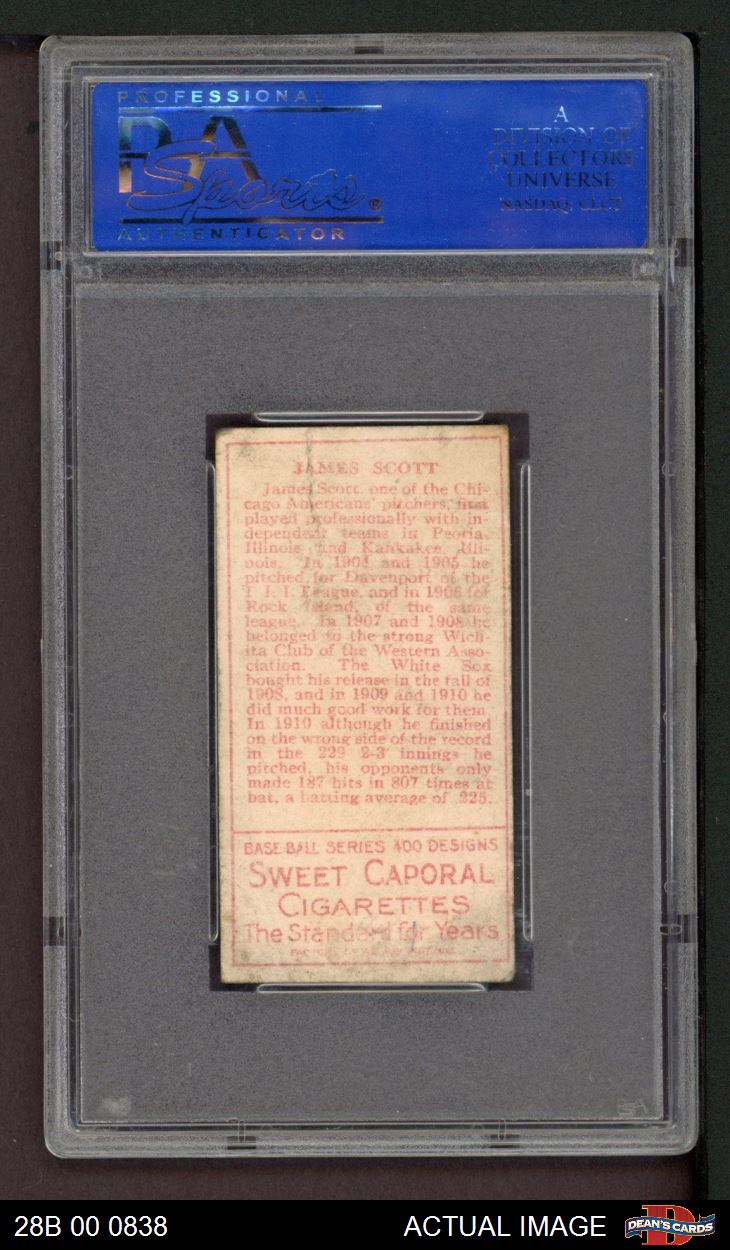 PROFESSIONAL
PSA
Sports®
AUTHENTICATOR
A
DIVISION OF
COLLECTORS
UNIVERSE
NASDAQ: CLCT
JAMES SCOTT
James Scott, one of the Chi-
cago Americans' pitchers, first
played professionally with in-
dependent teams in Peoria,
Illinois and Kankakee, Illi-
nois. In 1904 and 1905 he
pitched for Davenport of the
I. I. I. League, and in 1906 for
Rock Island, of the same
league. In 1907 and 1908 he
belonged to the strong Wich-
ita Club of the Western Asso-
ciation. The White Sox
bought his release in the fall of
1908, and in 1909 and 1910 he
did much good work for them.
In 1910 although he finished
on the wrong side of the record
in the 229 2-3 innings he
pitched, his opponents only
made 187 hits in 807 times at
bat, a batting average of .225.
BASE BALL SERIES 400 DESIGNS
SWEET CAPORAL
CIGARETTES
The Standard for Years
28B 00 0838
ACTUAL IMAGE
DEAN'S CARDS